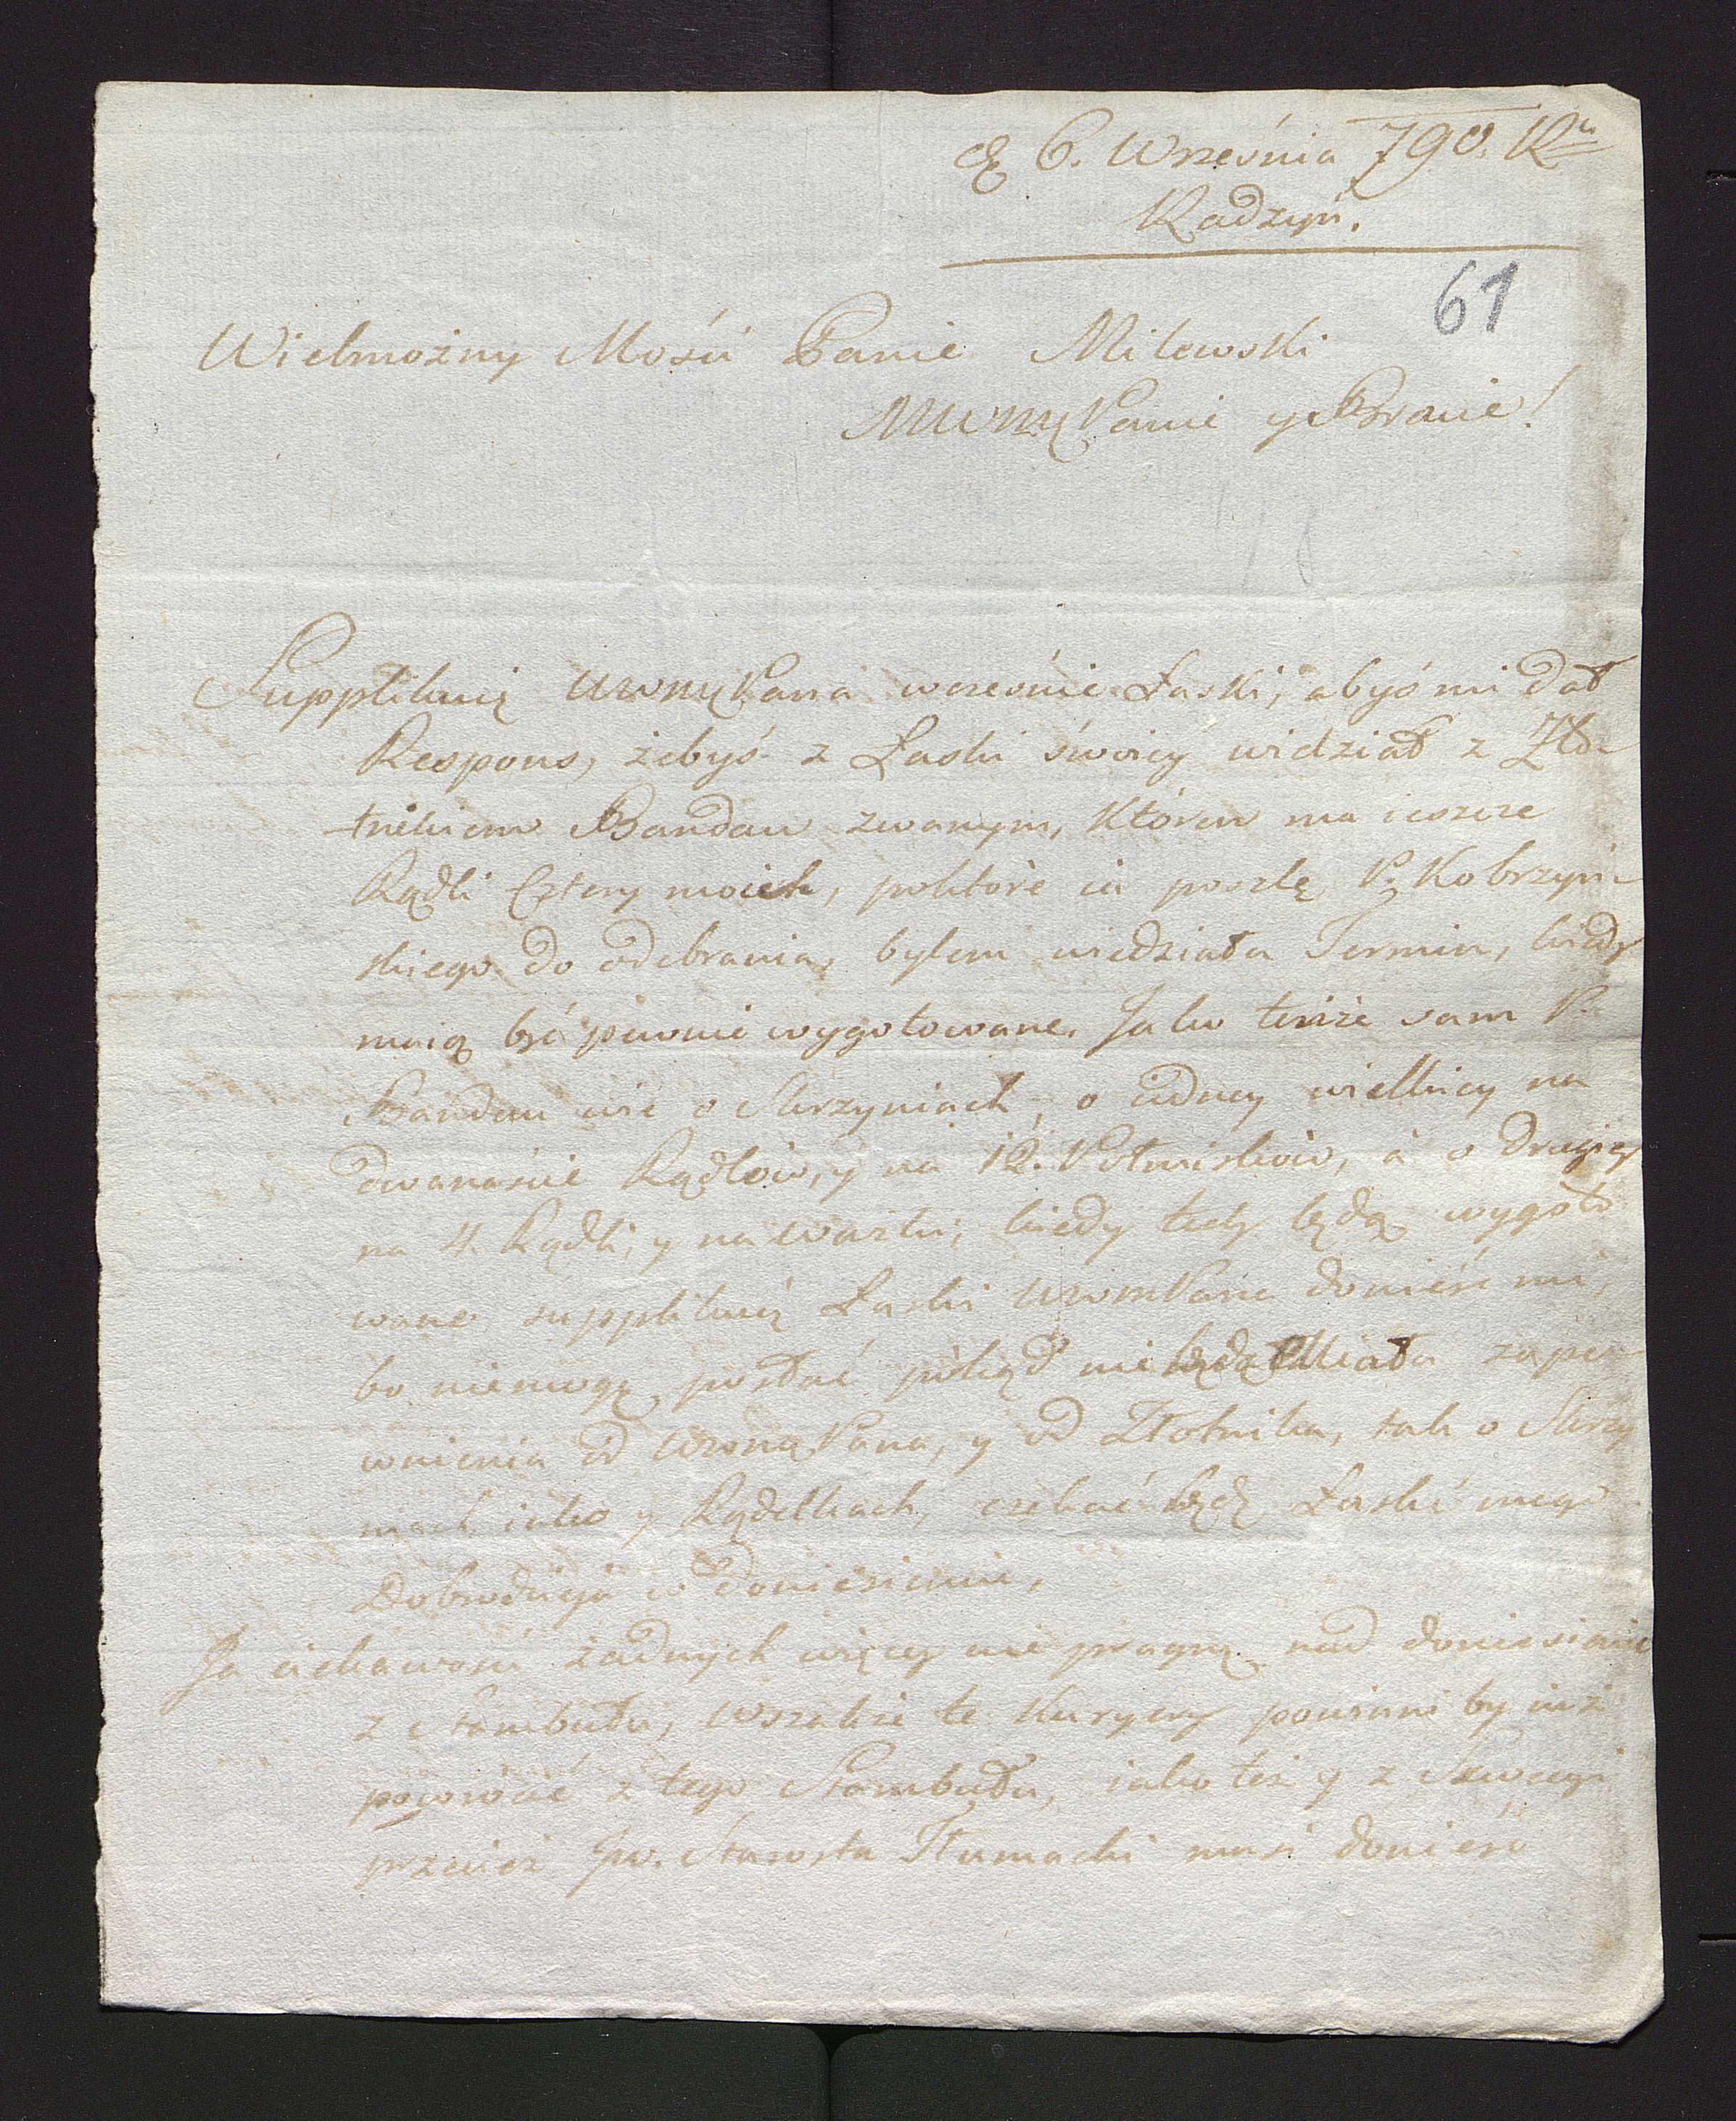 d 6. Września 790. Ru
Radzyń.
61
Wielmożny Mości Panie Milewski
MWMę Panie y Bracie!
Supplikuię UWMę Pana wcześnie Łaski, abyś mi dał
Respons, żebyś z Łaski swoiey widział z Zło-
tnikiem Bandau zwanym, któren ma ieszcze
Rądli Cztery moich, po które ia poszlę P. Kobrzyń-
skiego do odebrania, bylem wiedziała Termin, kiedy
maią być pewnie wygotowane. Jako tenże sam P.
Bandau wie o Skrzyniach, o iedney wielkiey na
dwanaście Rądlów, y na 12. Półmisków, a o drugiey
na 4. Rądli, y na Wazki, kiedy tedy będą wygoto
wane supplikuię Łaski UWM Pana donieść mi,
bo niemogę posłać pókąd nie będę Miała zape-
wnienia od UWMę Pana, y od Złotnika, tak o Skrzy
niach iako y Rądelkach, czekać będę Łaski mego
Dobrodzieja w doniesieniu,
Ja ciekawości żadnych więcey nie pragnę nad doniesienie
z Stambułu, wszakże te Kuryery powinni by iuż
powrócić z tego Stambułu, iako też y z Szwecyi
przecież Jw. Starosta Tłumacki musi donieść